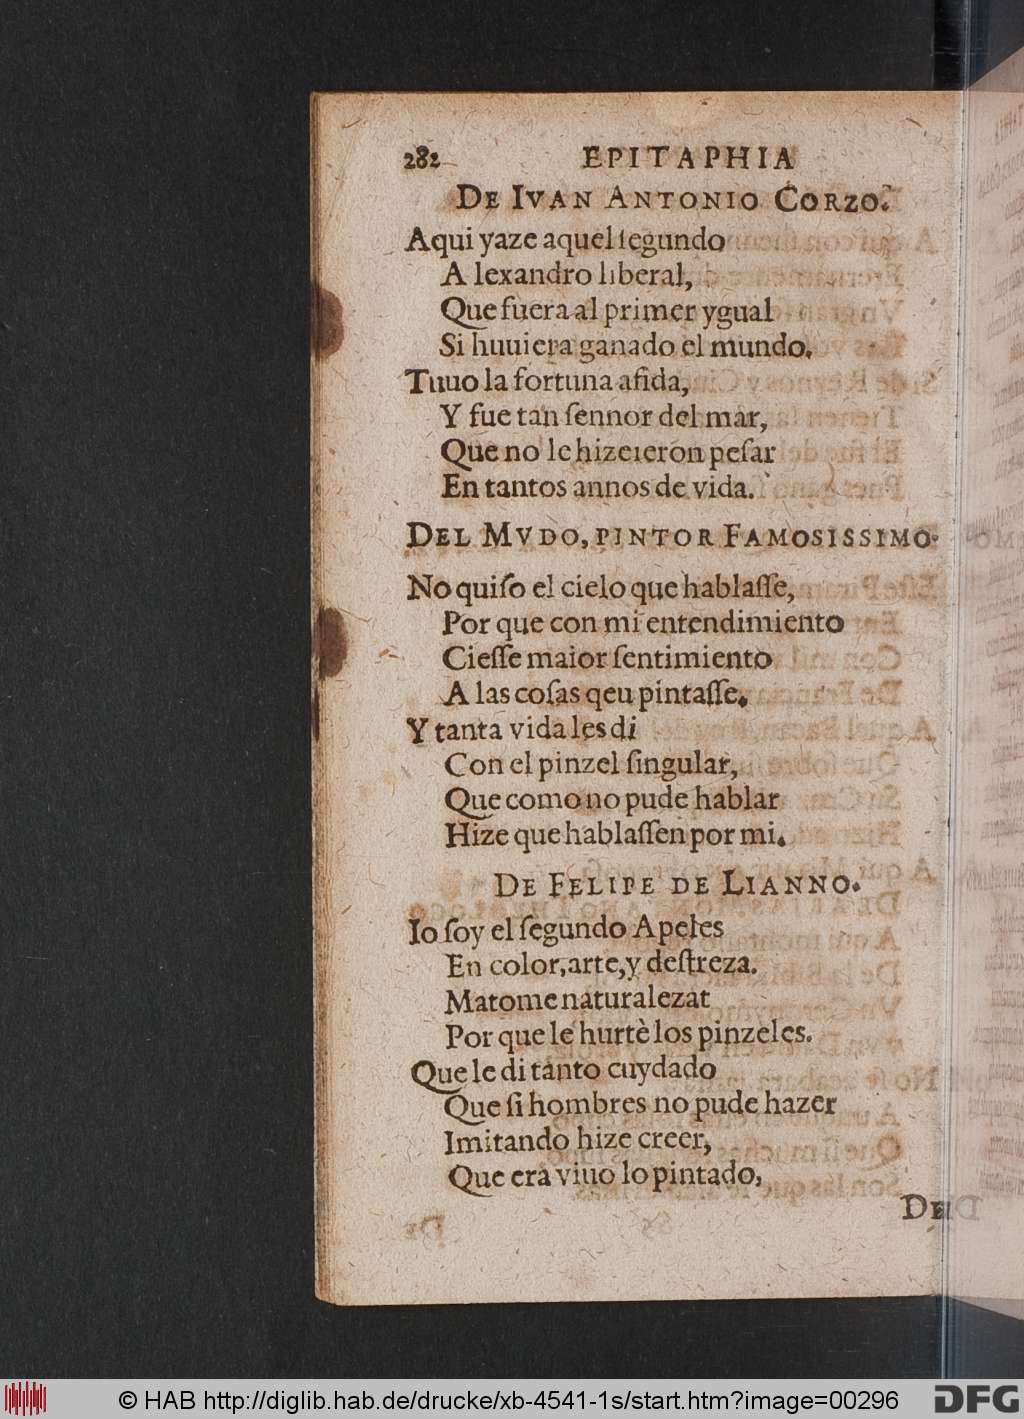 282 EPITAPHIA
DE IVAN ANTONIO CORZO.
Aqui yaze aquel ſegundo
A lexandro liberal,
Que fuera al primer ygual
Si huuiera ganado el mundo.
Tuuo la fortuna aſida,
Y fue tan ſennor del mar,
Que no le hizeieron peſar
En tantos annos de vida.
DEL MVDO, PINTOR FAMOSISSIMO.
No quiſo el cielo que hablaſſe,
Por que con mi entendimiento
Cieſſe maior ſentimiento
A las coſas qeu pintaſſe.
Y tanta vida les di
Con el pinzel ſingular,
Que como no pude hablar
Hize que hablaſſen por mi.
DE FELIPE DE LIANNO.
Io ſoy el ſegundo Apeles
En color, arte, y deſtreza.
Matome naturalezat
Por que le hurtè los pinzeles.
Que le di tanto cuydado
Que ſi hombres no pude hazer
Imitando hize creer,
Que era viuo lo pintado,
DE
© HAB http://diglib.hab.de/drucke/xb-4541-1s/start.htm?image=00296
DFG